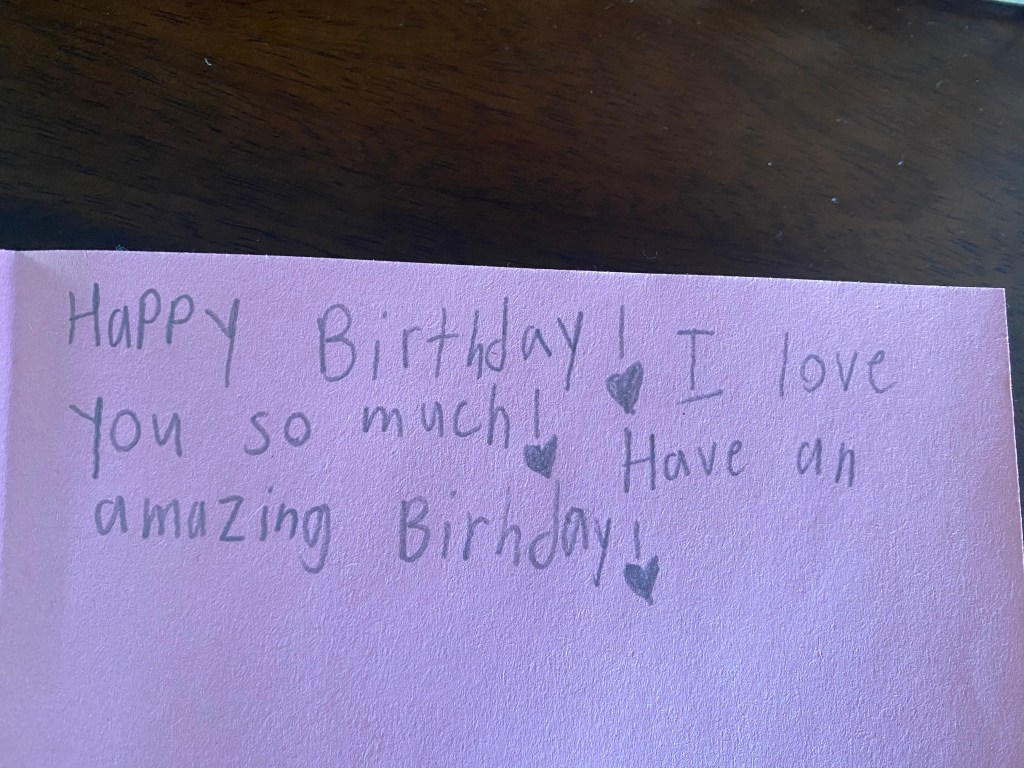 Happy Birthday! I love
you so much! Have an
amazing Birhday!